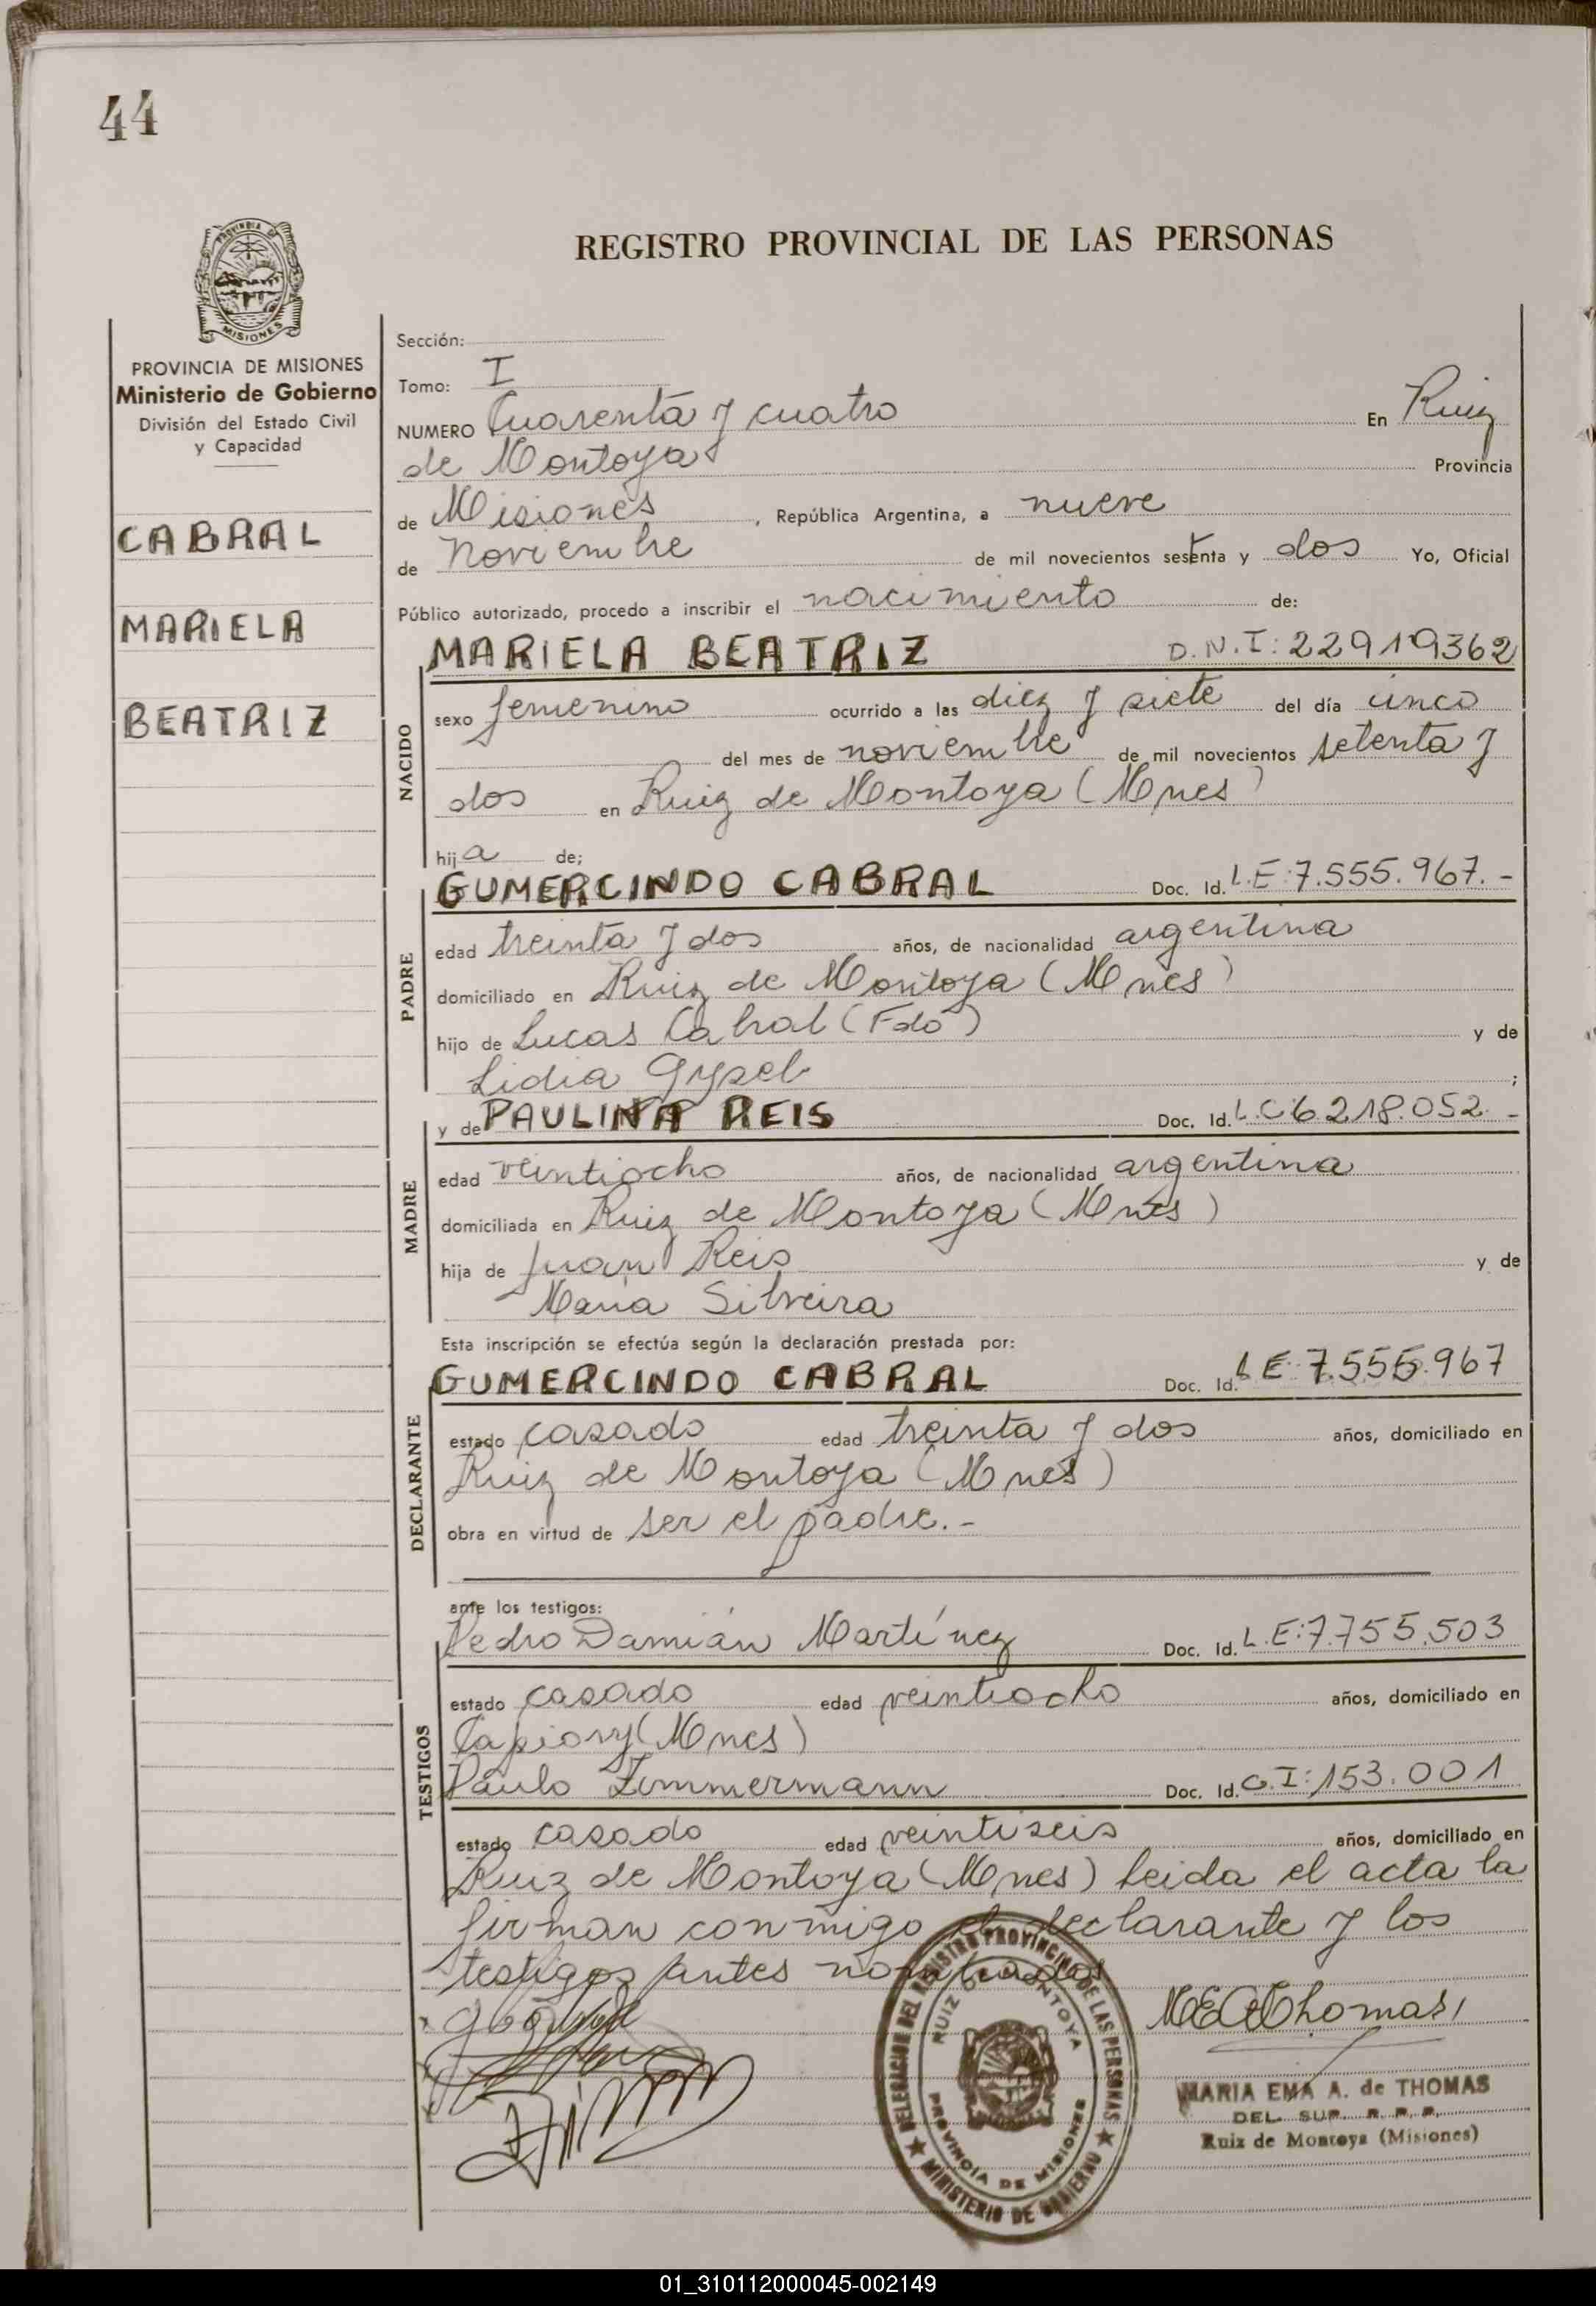 44
REGISTRO PROVINCIAL DE LAS PERSONAS
PROVINCIA DE
MISIONES
PROVINCIA DE MISIONES
Ministerio de Gobierno
División del Estado Civil
y Capacidad
CABRAL
MARIELA
BEATRIZ
Sección:
Tomo: I
NUMERO Cuarenta y cuatro En Ruiz
de Montoya Provincia
de Misiones, República Argentina, a nueve
de Noviembre de mil novecientos setenta y dos Yo, Oficial
Público autorizado, procedo a inscribir el nacimiento de:
MARIELA BEATRIZ D.N.I: 22919362
NACIDO
sexo femenino ocurrido a las diez y siete del día cinco
del mes de noviembre de mil novecientos setenta y
dos en Ruiz de Montoya (Mnes)
hija de;
GUMERCINDO CABRAL Doc. Id. L.E:7.555.967.-
PADRE
edad treinta y dos años, de nacionalidad argentina
domiciliado en Ruiz de Montoya (Mnes)
hijo de Lucas Cabral (Fdo) y de
Lidia ;
y de PAULINA REIS Doc. Id. L.C:6.218.052.-
MADRE
edad veintiocho años, de nacionalidad argentina
domiciliada en Ruiz de Montoya (Mnes)
hija de Juan Reis y de
Maria Silveira
Esta inscripción se efectúa según la declaración prestada por:
GUMERCINDO CABRAL Doc. Id. L.E:7.555.967
DECLARANTE
estado casado edad treinta y dos años, domiciliado en
Ruiz de Montoya (Mnes)
obra en virtud de ser el padre.-
ante los testigos:
Pedro Damián Martínez Doc. Id. L.E:7.755.503
TESTIGOS
estado casado edad veintiocho años, domiciliado en
Capiovy (Mnes)
Paulo Zimmermann Doc. Id. C.I:153.001
estado casado edad veintiseis años, domiciliado en
Ruiz de Montoya (Mnes) leida el acta la
firman conmigo el declarante y los
testigos antes nombrados
DELEGACION DEL REGISTRO PROVINCIAL DE LAS PERSONAS
RUIZ DE MONTOYA
PROVINCIA DE MISIONES
★ MINISTERIO DE GOBIERNO ★
MEAdeThomas
MARIA EMA A. de THOMAS
DEL. SUP. R. P. P.
Ruiz de Montoya (Misiones)
01_310112000045-002149